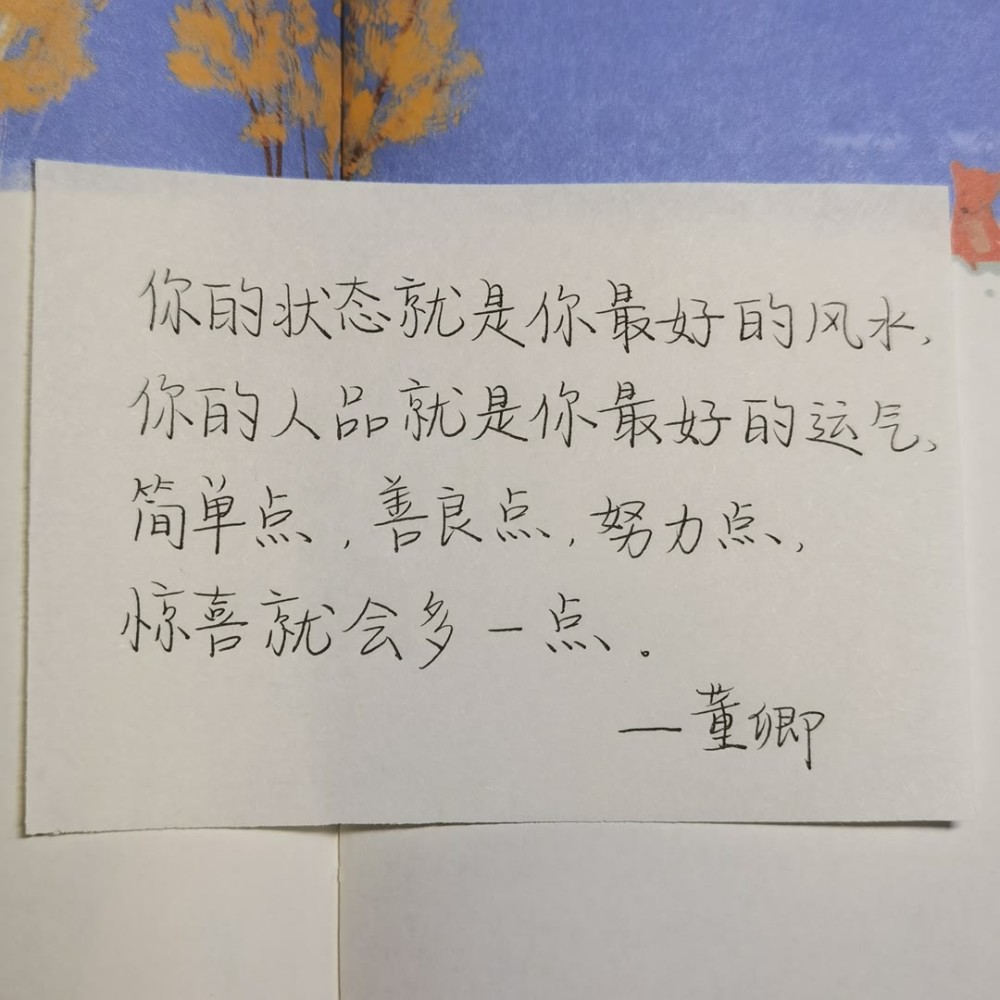 你的状态就是你最好的风水,
你的人品就是你最好的运气,
简单点,善良点,努力点,
惊喜就会多一点。
—董卿